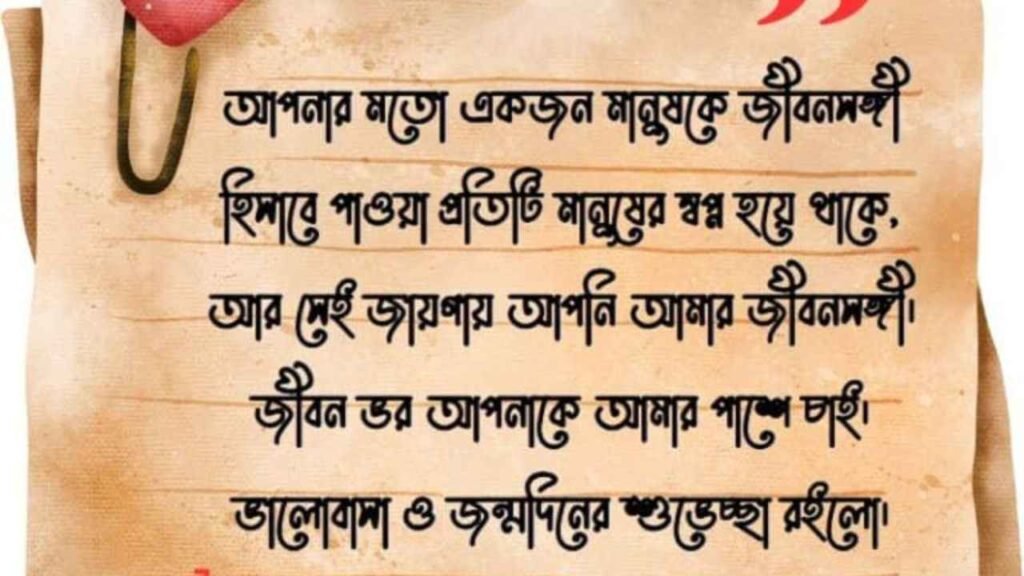 আপনার মতো একজন মানুষকে জীবনসঙ্গী
হিসাবে পাওয়া প্রতিটি মানুষের স্বপ্ন হয়ে থাকে,
আর সেই জায়গায় আপনি আমার জীবনসঙ্গী।
জীবন ভর আপনাকে আমার পাশে চাই।
ভালোবাসা ও জন্মদিনের শুভেচ্ছা রইলো।